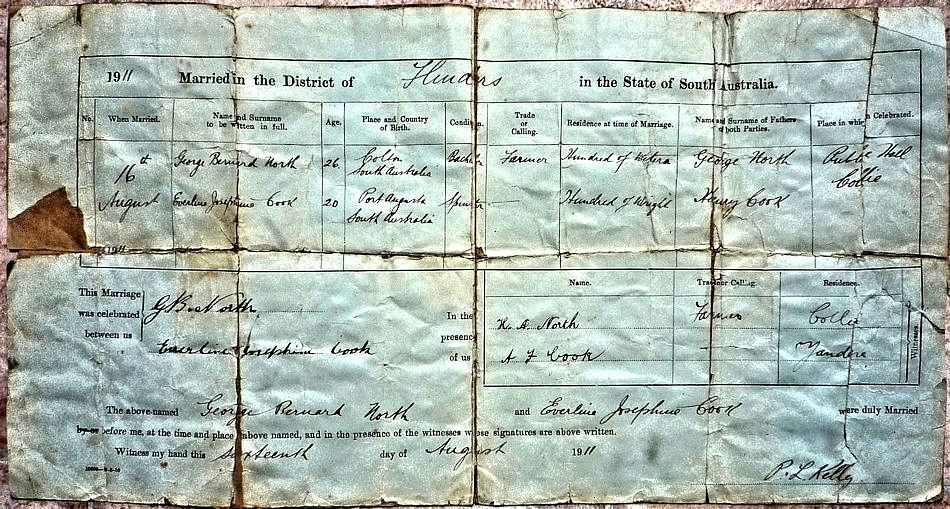 1911 Married in the District of Flinders in the State of South Australia.
No. When Married. Name and Surname to be written in full. Age. Place and Country of Birth. Condition. Trade or Calling. Residence at time of Marriage. Name and Surname of Fathers of both Parties. Place in which Celebrated.
16th George Bernard North 26 Colton South Australia Bachelor Farmer Hundred of George North Public Hall Collie
August Everline Josephine Cook 20 Port Augusta South Australia Spinster Hundred of Wright Henry Cook
1911
This Marriage was celebrated between us
G B North
Everline Josephine Cook
In the presence of us
Name. Trade or Calling. Residence.
K. A. North Farmer Collie
A J Cook Yandera
Witnesses.
The above-named George Bernard North and Everline Josephine Cook were duly Married
by or before me, at the time and place above named, and in the presence of the witnesses whose signatures are above written.
Witness my hand this sixteenth day of August 1911
P. L. Kelly